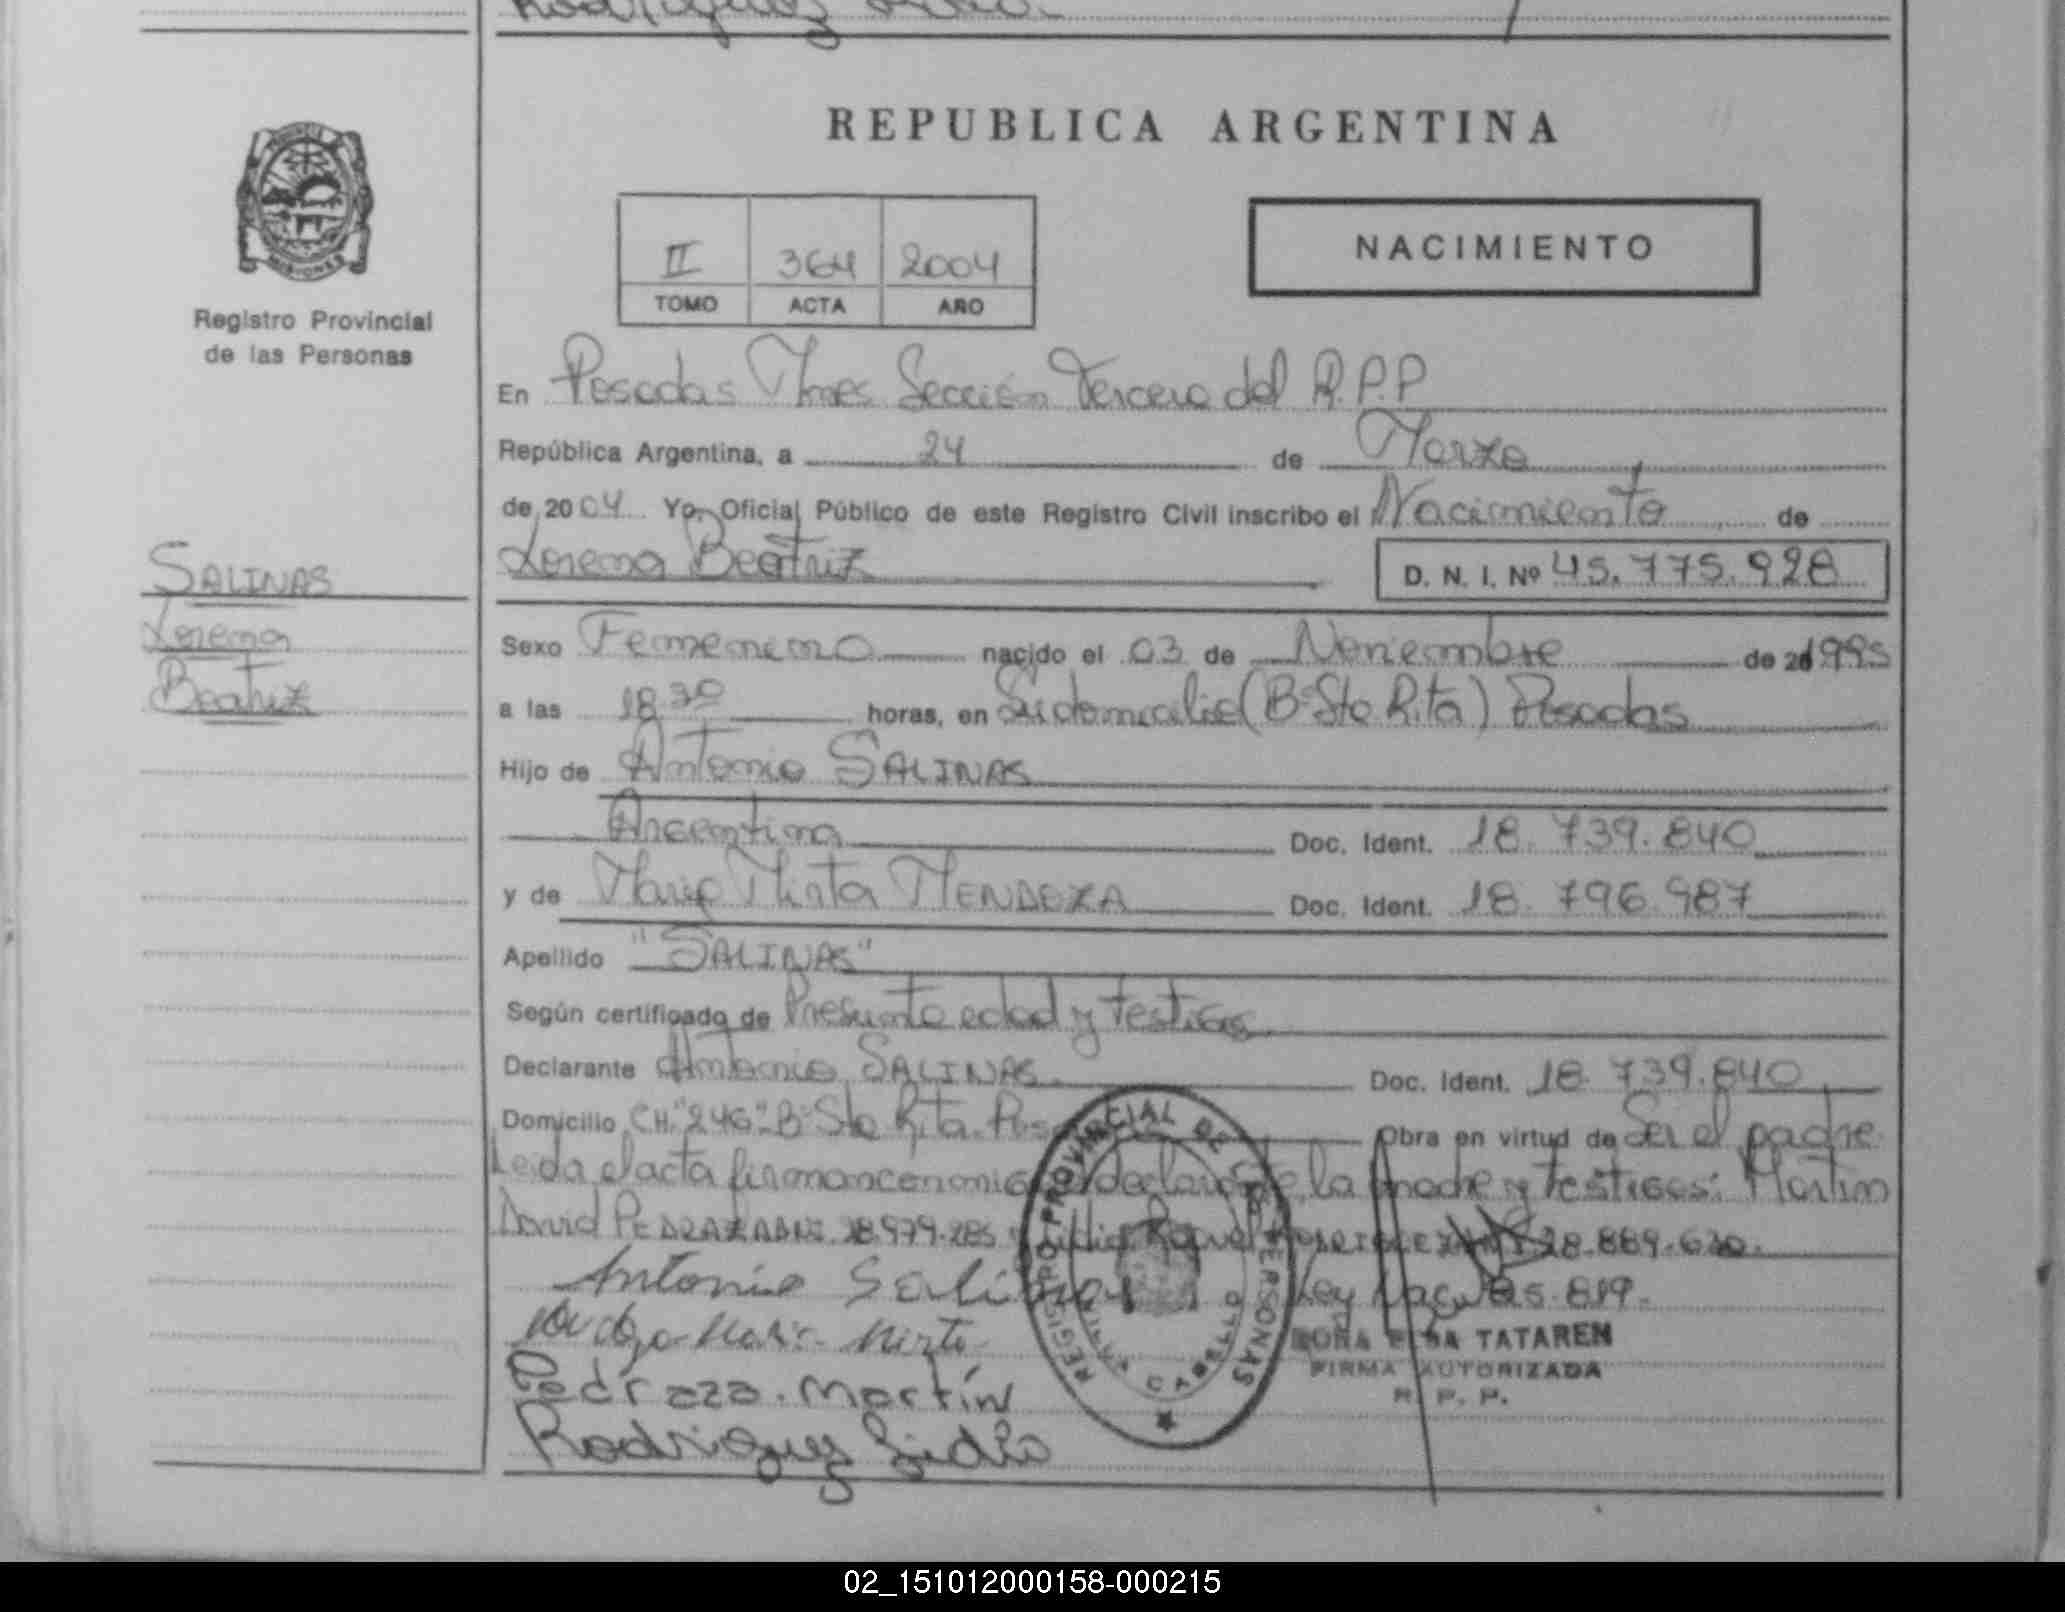 REPUBLICA ARGENTINA
MISIONES
Registro Provincial
de las Personas
II 364 2004
TOMO ACTA AÑO
NACIMIENTO
En Posadas Mnes Sección Tercera del R.P.P
República Argentina, a 24 de Marzo
de 2004 Yo, Oficial Público de este Registro Civil inscribo el Nacimiento de
Lorena Beatriz D. N. I. Nº 45.775.928
SALINAS
Lorena
Beatriz
Sexo Femenino nacido el 03 de Noviembre de 1995
a las 18 30 horas, en Su domicilio (Bº Sta Rita) Posadas
Hijo de Antonio SALINAS
Argentina Doc. Ident. 18.739.840
y de María Mirta MENDOZA Doc. Ident. 18.796.987
Apellido "SALINAS"
Según certificado de Presunta edad y testigos
Declarante Antonio SALINAS Doc. Ident. 18.739.840
Domicilio CH. "246" Bº Sta Rita. Obra en virtud de Ser el padre
Leida el acta firman conmigo declarante, la madre y testigos: Martin
David PEDRAZA DNI 28.979.285 28.889.620
Antonio Salinas Ley 25.819.
Mirta
Pedraza. Martín
Rodriguez
REGISTRO PROVINCIAL DE LAS PERSONAS
TATAREN
FIRMA AUTORIZADA
R. P. P.
02_151012000158-000215